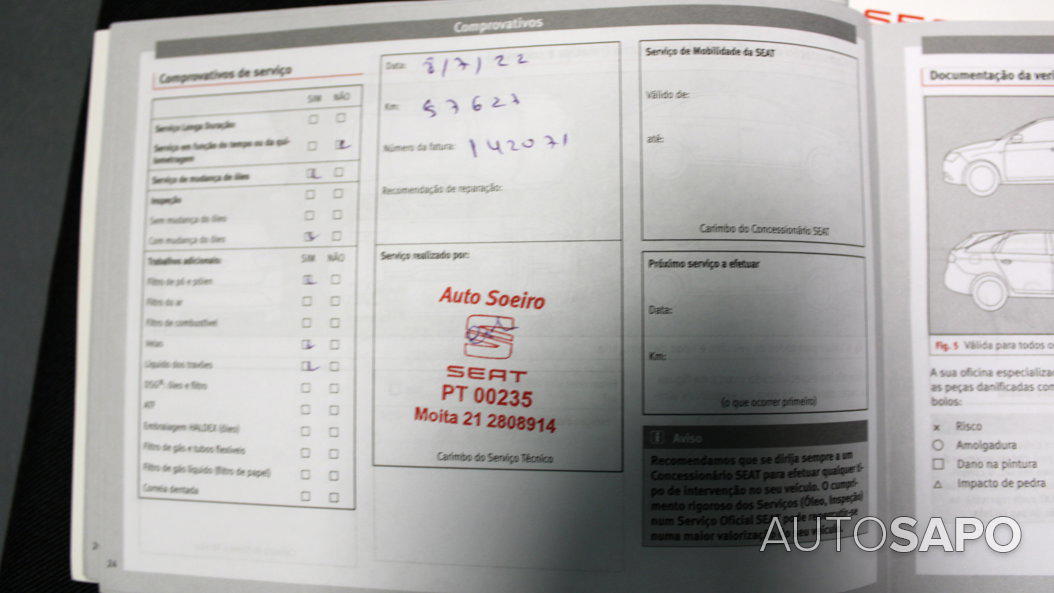 Comprovativos
SEAT
Comprovativos de serviço
SIM NÃO
Serviço Longa Duração
Serviço em função do tempo ou da qui-
lometragem
Serviço de mudança de óleo
Inspeção
Sem mudança do óleo
Com mudança do óleo
Trabalhos adicionais: SIM NÃO
Filtro de pó e pólen
Filtro do ar
Filtro de combustível
Velas
Líquido dos travões
DSG®: óleo e filtro
ATF
Embraiagem HALDEX (óleo)
Filtro de gás e tubos flexíveis
Filtro de gás líquido (filtro de papel)
Correia dentada
24
Data: 8/7/22
Km: 57627
Número da fatura: 142071
Recomendação de reparação:
Serviço realizado por:
Auto Soeiro
SEAT
PT 00235
Moita 21 2808914
Carimbo do Serviço Técnico
Serviço de Mobilidade da SEAT
Válido de:
até:
Carimbo do Concessionário SEAT
Próximo serviço a efetuar
Data:
Km:
(o que ocorrer primeiro)
Aviso
Recomendamos que se dirija sempre a um
Concessionário SEAT para efetuar qualquer ti-
po de intervenção no seu veículo. O cumpri-
mento rigoroso dos Serviços (Óleo, Inspeção)
num Serviço Oficial SEAT pode repercutir-se
numa maior valorização do seu veículo.
Documentação da veri
Fig. 5 Válida para todos o
A sua oficina especializa
as peças danificadas com
bolos:
x Risco
○ Amolgadura
□ Dano na pintura
△ Impacto de pedra
AUTOSAPO